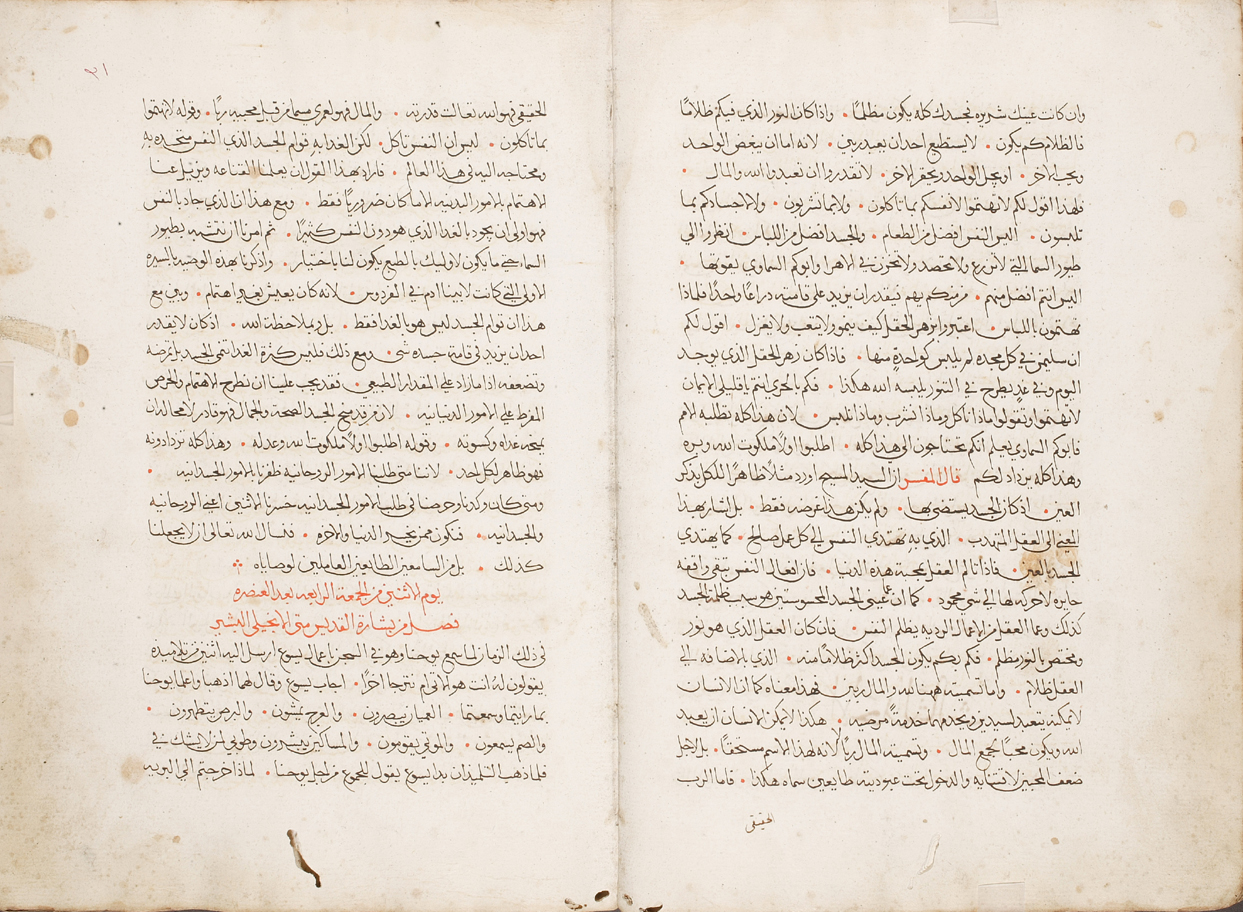 وان كانت عينك شريره فجسدك كله يكون مظلمًا • واذا كان النور الذي فيكم ظلامًا
فالظلام كم يكون • لا يستطيع احد ان يعبد ربين • لانه اما ان يبغض الواحد
ويحب الاخر • او يجل الواحد ويحقر الاخر • لا تقدروا ان تعبدوا الله والمال •
فلهذا اقول لكم لا تهتموا لانفسكم بما تاكلون • ولا بما تشربون • ولا لاجسادكم بما
تلبسون • اليس النفس افضل من الطعام • والجسد افضل من اللباس • انظروا الي
طيور السما التي لا تزرع ولا تحصد ولا تخزن في الاهرا وابوكم السماوي يقوتها •
اليس انتم افضل منهم • من منكم يهم فيقدر ان يزيد علي قامته دراعًا واحدًا فلماذا
تهتمون باللباس • اعتبروا بزهر الحقل كيف ينمو ولا يتعب ولا يغزل • اقول لكم
ان سليمن في كل مجده لم يلبس كواحدةٍ منها • فاذا كان زهر الحقل الذي يوجد
اليوم وفي غدٍ يطرح في التنور يلبسه الله هكذا • فكم بالحري انتم يا قليلي الايمان
لا تهتموا وتقولوا ماذا ناكل وماذا نشرب وماذا نلبس • لان هذا كله تطلبه الامم
فابوكم السماوي يعلم انكم تحتاجون الي هذا كله • اطلبوا اولًا ملكوت الله وبره
وهذا كله يزداد لكم قال المفسر ان السيد المسيح اورد مثلًا ظاهرًا للكل بذكر
العين • اذ كان الجسد يستضي بها • ولم يكن هذا غرضه فقط • بل اشار بهذا
المعني الي العقل المتهدب • الذي به تهتدي النفس الي كل عمل صالح • كما يهتدي
الجسد بالعين • فاذا تالم العقل بمحبة هذه الدنيا • فان افعال النفس تبقي واقفه
حايره لا حركه لها الي شي محمود • كما ان عمي عيني الجسد المحسوستين هو سبب ظلمة الجسد
كذلك وعما العقل من الاعمال الرديه يظلم النفس • فان كان العقل الذي هو نور
ومختص بالنور مظلم • فكم بكم يكون الجسد اكثر ظلامًا منه • الذي بالاضافه الي
العقل ظلام • واما تسميته ههنا لله والمال ربين • فهذا معناه كما ان الانسان
لا يمكنه يتعبد لسيدين ويخدمهما خدمةً مرضيه • هكذا لا يمكن الانسان ان يعبد
الله ويكون محبًا لجمع المال • وتسميته المال ربًا لا لانه لهذا الاسم مستحقًا • بل لاجل
ضعف المحبين لاقتنايه والدخول تحت عبوديته طايعين سماه هكذا • فاما الرب
الحقيقي
٣١
الحقيقي فهو الله تعالت قدرته • والمال فهو لعمري سيما من قبل محبيه ربًا • وقوله لا تهتموا
بما تاكلون • ليس ان النفس تاكل • لكن الغدا به قوام الجسد الذي النفس متحده به
ومحتاجه اليه في هذا العالم • فاراد بهذا القول ان يعلمنا القناعه ويزيل عنا
الاهتمام بالامور البدنيه الا ما كان ضروريًا فقط • ومع هذا ان الذي جاد بالنفس
فهو اولي ان يجود بالغدا الذي هو دون النفس كثيرًا • ثم امرنا ان نتشبه بطيور
السما حتي ما يكون لاوليك بالطبع يكون لنا باختيار • واذكرنا بهذه الوصيه بالسيره
الاولي التي كانت لابينا ادم في الفردوس • لانه كان يعيش بغير اهتمام • وبين مع
هذا ان قوام الجسد ليس هو بالغدا فقط • بل وبملاحظة الله • اذ كان لا يقدر
احد ان يزيد في قامة جسده شي • ومع ذلك فليس كثرة الغدا تنمي الجسد بل تمرضه
وتضعفه اذا ما زاد علي المقدار الطبيعي • فقد يجب علينا ان نطرح الاهتمام والحرص
المفرط علي الامور الدنيانيه • لان من قد منح الجسد الصحة والجمال فهو قادر لا محاله ان
يمنحه غداه وكسوته • وقوله اطلبوا اولًا ملكوت الله وعدله • وهذا كله تزدادونه
فهو ظاهر لكل احد • لاننا متي طلبنا الامور الروحانيه ظفرنا بالامور الجسدانيه •
ومتي كان وكدنا وحرصنا في طلب الامور الجسدانيه خسرنا الاثنين اعني الروحانيه
والجسدانيه • فنكون ممن يخسر الدنيا والاخره • فنسال الله تعالي ان لا يجعلنا
كذلك • بل من السامعين الطايعين العاملين لوصاياه
يوم الاثنين من الجمعة الرابعه بعد العنصره
فصل من بشارة القديس متي الانجيلي البشير
في ذلك الزمان لما سمع يوحنا وهو في السجن باعمال يسوع ارسل اليه اثنين من تلاميذه
يقولون له انت هو الاتي ام نترجا اخرًا • اجاب يسوع وقال لهما اذهبا واعلما يوحنا
بما رايتما وسمعتما • العميان يبصرون • والعرج يمشون • والبرص يتطهرون •
والصم يسمعون • والموتي يقومون • والمساكين يبشرون وطوبي لمن لا يشك في
فلما ذهب التلميذان بدا يسوع يقول للجموع من اجل يوحنا • لماذا خرجتم الي البريه